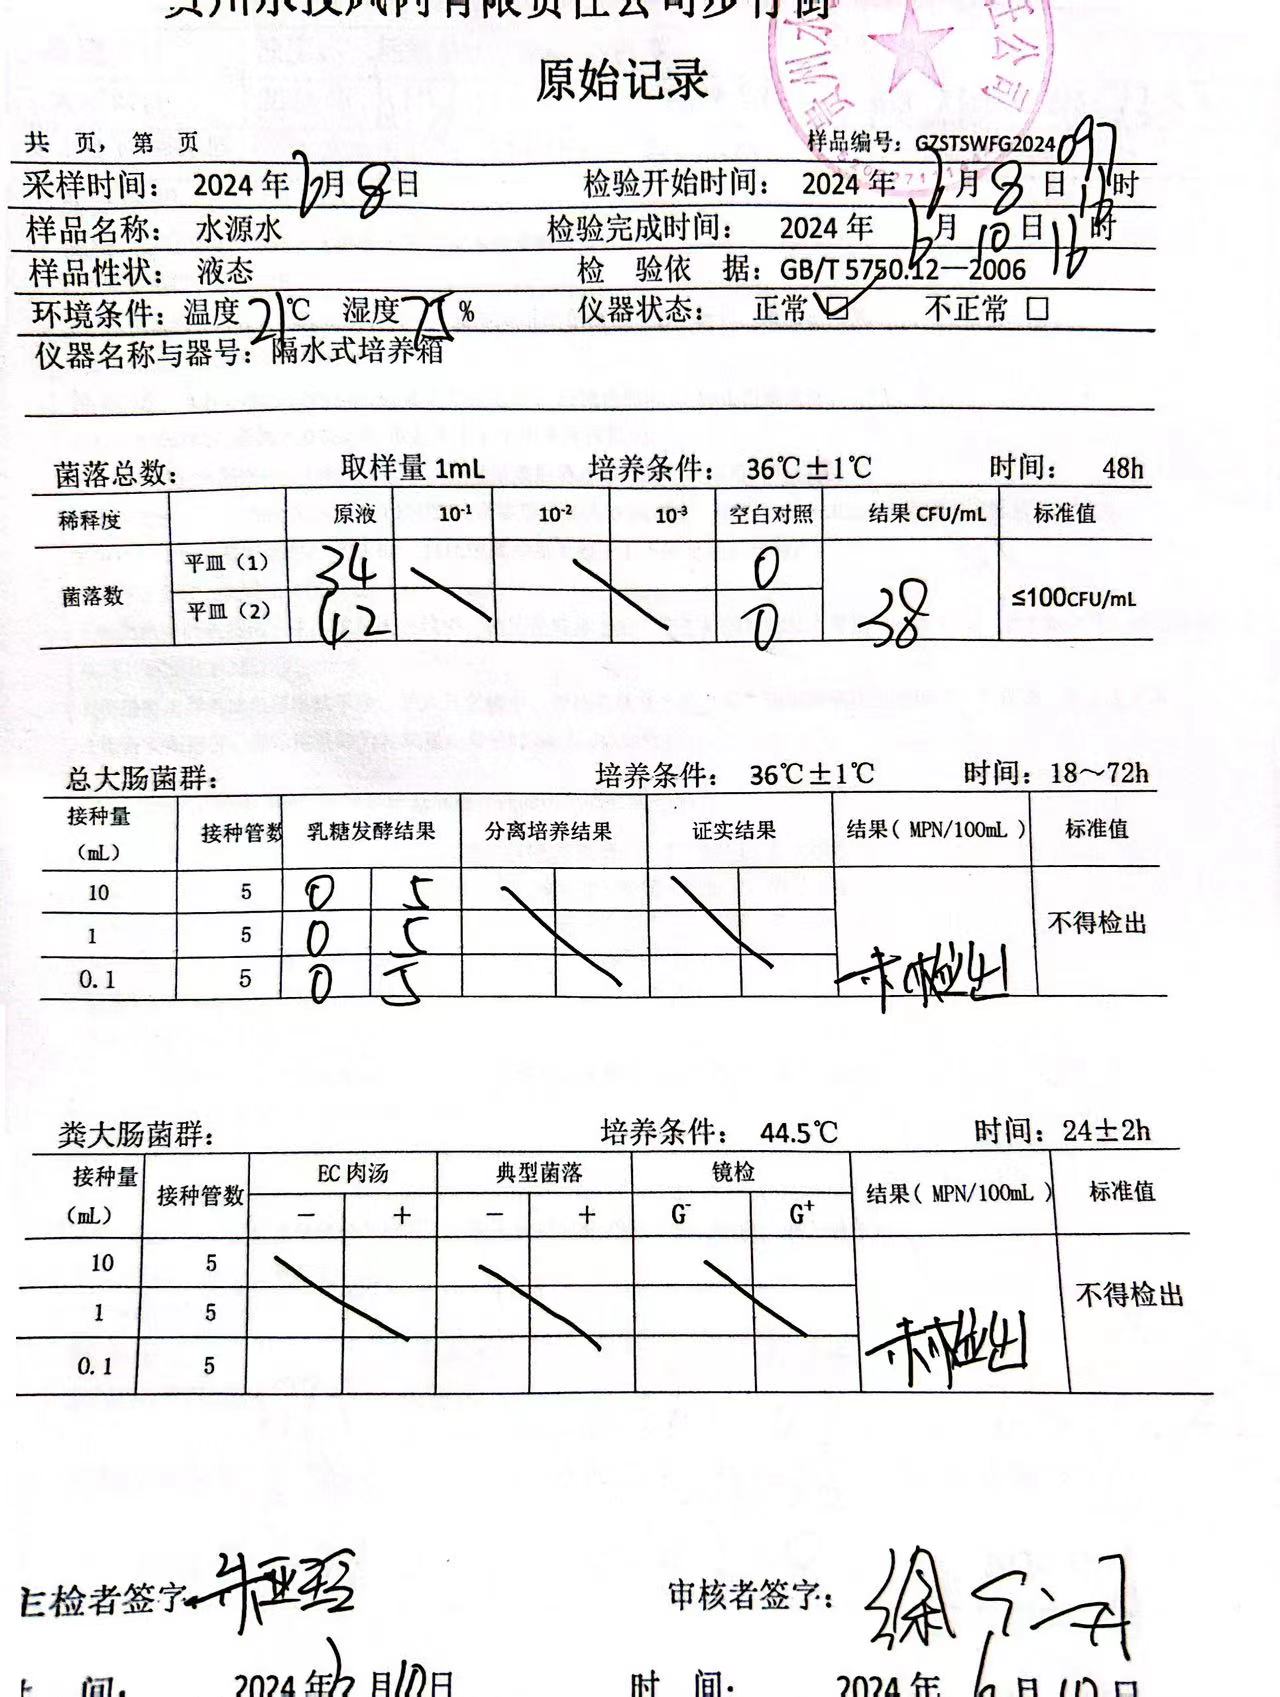 原始记录
共 页，第 页 样品编号：GZSTSWFG2024097
采样时间： 2024 年 6 月 8 日 检验开始时间： 2024 年 6 月 8 日 16 时
样品名称： 水源水 检验完成时间： 2024 年 6 月 10 日 16 时
样品性状： 液态 检 验依 据：GB/T 5750.12—2006
环境条件：温度 21 ℃ 湿度 75 % 仪器状态： 正常 ☑ 不正常 □
仪器名称与器号：隔水式培养箱
菌落总数： 取样量 1mL 培养条件： 36℃±1℃ 时间： 48h
稀释度 原液 10⁻¹ 10⁻² 10⁻³ 空白对照 结果 CFU/mL 标准值
菌落数 平皿（1） 34 0 38 ≤100CFU/mL
平皿（2） 42 0
总大肠菌群： 培养条件： 36℃±1℃ 时间：18～72h
接种量（mL） 接种管数 乳糖发酵结果 分离培养结果 证实结果 结果（MPN/100mL） 标准值
10 5 0 5 未检出 不得检出
1 5 0 5
0.1 5 0 5
粪大肠菌群： 培养条件： 44.5℃ 时间：24±2h
接种量（mL） 接种管数 EC 肉汤 典型菌落 镜检 结果（MPN/100mL） 标准值
－ ＋ － ＋ G⁻ G⁺
10 5 未检出 不得检出
1 5
0.1 5
主检者签字： 审核者签字：徐
间： 2024 年 6 月 10 日 时 间： 2024 年 6 月 10 日